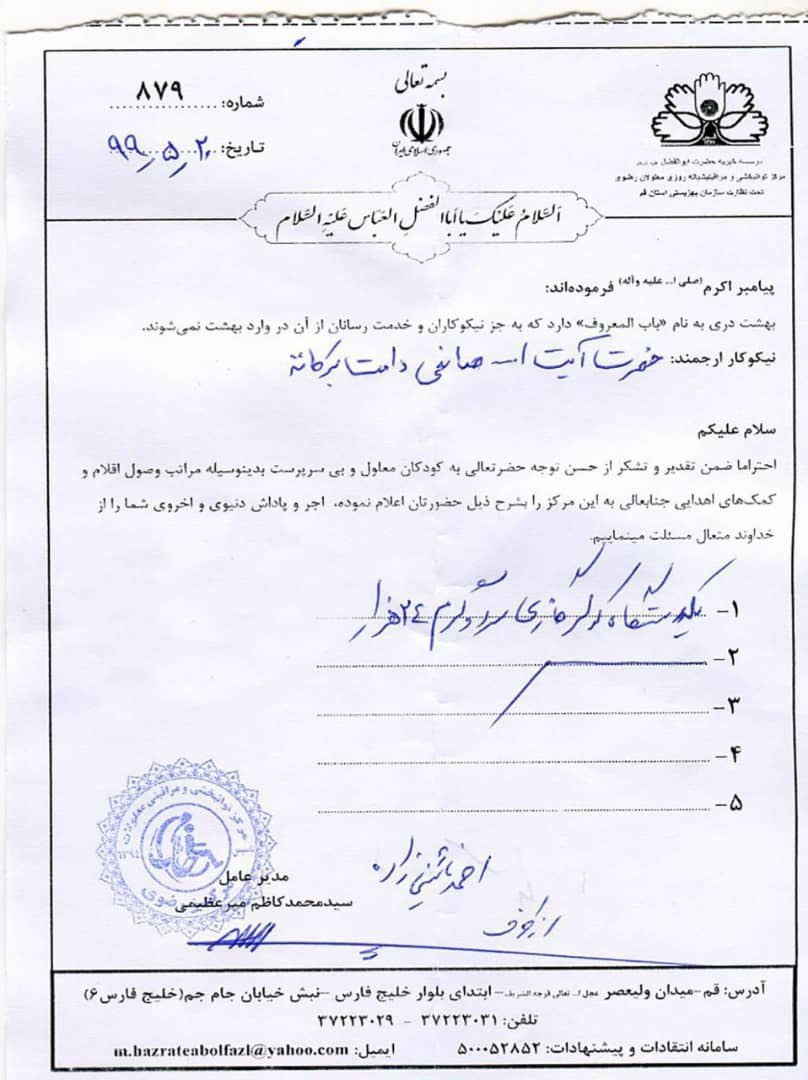 بسمه تعالی
جمهوری اسلامی ایران
شماره: ۸۷۹
تاریخ: ۹۹٫۵٫۲۰
موسسه خیریه حضرت ابوالفضل
مرکز توانبخشی و مراقبتی شبانه روزی معلولان رضوی
تحت نظارت سازمان بهزیستی استان قم
السَّلامُ عَلَیْکَ یا أبَاالفَضلِ العَبّاس عَلَیْهِ السَّلام
پیامبر اکرم(صلی ا... علیه وآله) فرموده‌اند:
بهشت دری به نام «باب المعروف» دارد که به جز نیکوکاران و خدمت رسانان از آن در وارد بهشت نمی‌شوند.
نیکوکار ارجمند: حضرت آیت ا... صانعی دامت برکاته
سلام علیکم
احتراما ضمن تقدیر و تشکر از حسن توجه حضرتعالی به کودکان معلول و بی سرپرست بدینوسیله مراتب وصول اقلام و
کمک‌های اهدایی جنابعالی به این مرکز را بشرح ذیل حضورتان اعلام نموده، اجر و پاداش دنیوی و اخروی شما را از
خداوند متعال مسئلت مینماییم.
۱– یکدستگاه کولر گازی سرد و گرم ۲۴ هزار
۲–
۳–
۴–
۵–
مدیر عامل
سیدمحمدکاظم میرعظیمی
آدرس: قم-میدان ولیعصر عجل ا... تعالی فرجه الشریف– ابتدای بلوار خلیج فارس –نبش خیابان جام جم(خلیج فارس۶)
تلفن: ۳۷۲۲۳۰۳۱ - ۳۷۲۲۳۰۲۹
سامانه انتقادات و پیشنهادات: ۵۰۰۰۵۲۸۵۲ ایمیل: m.hazrateabolfazl@yahoo.com